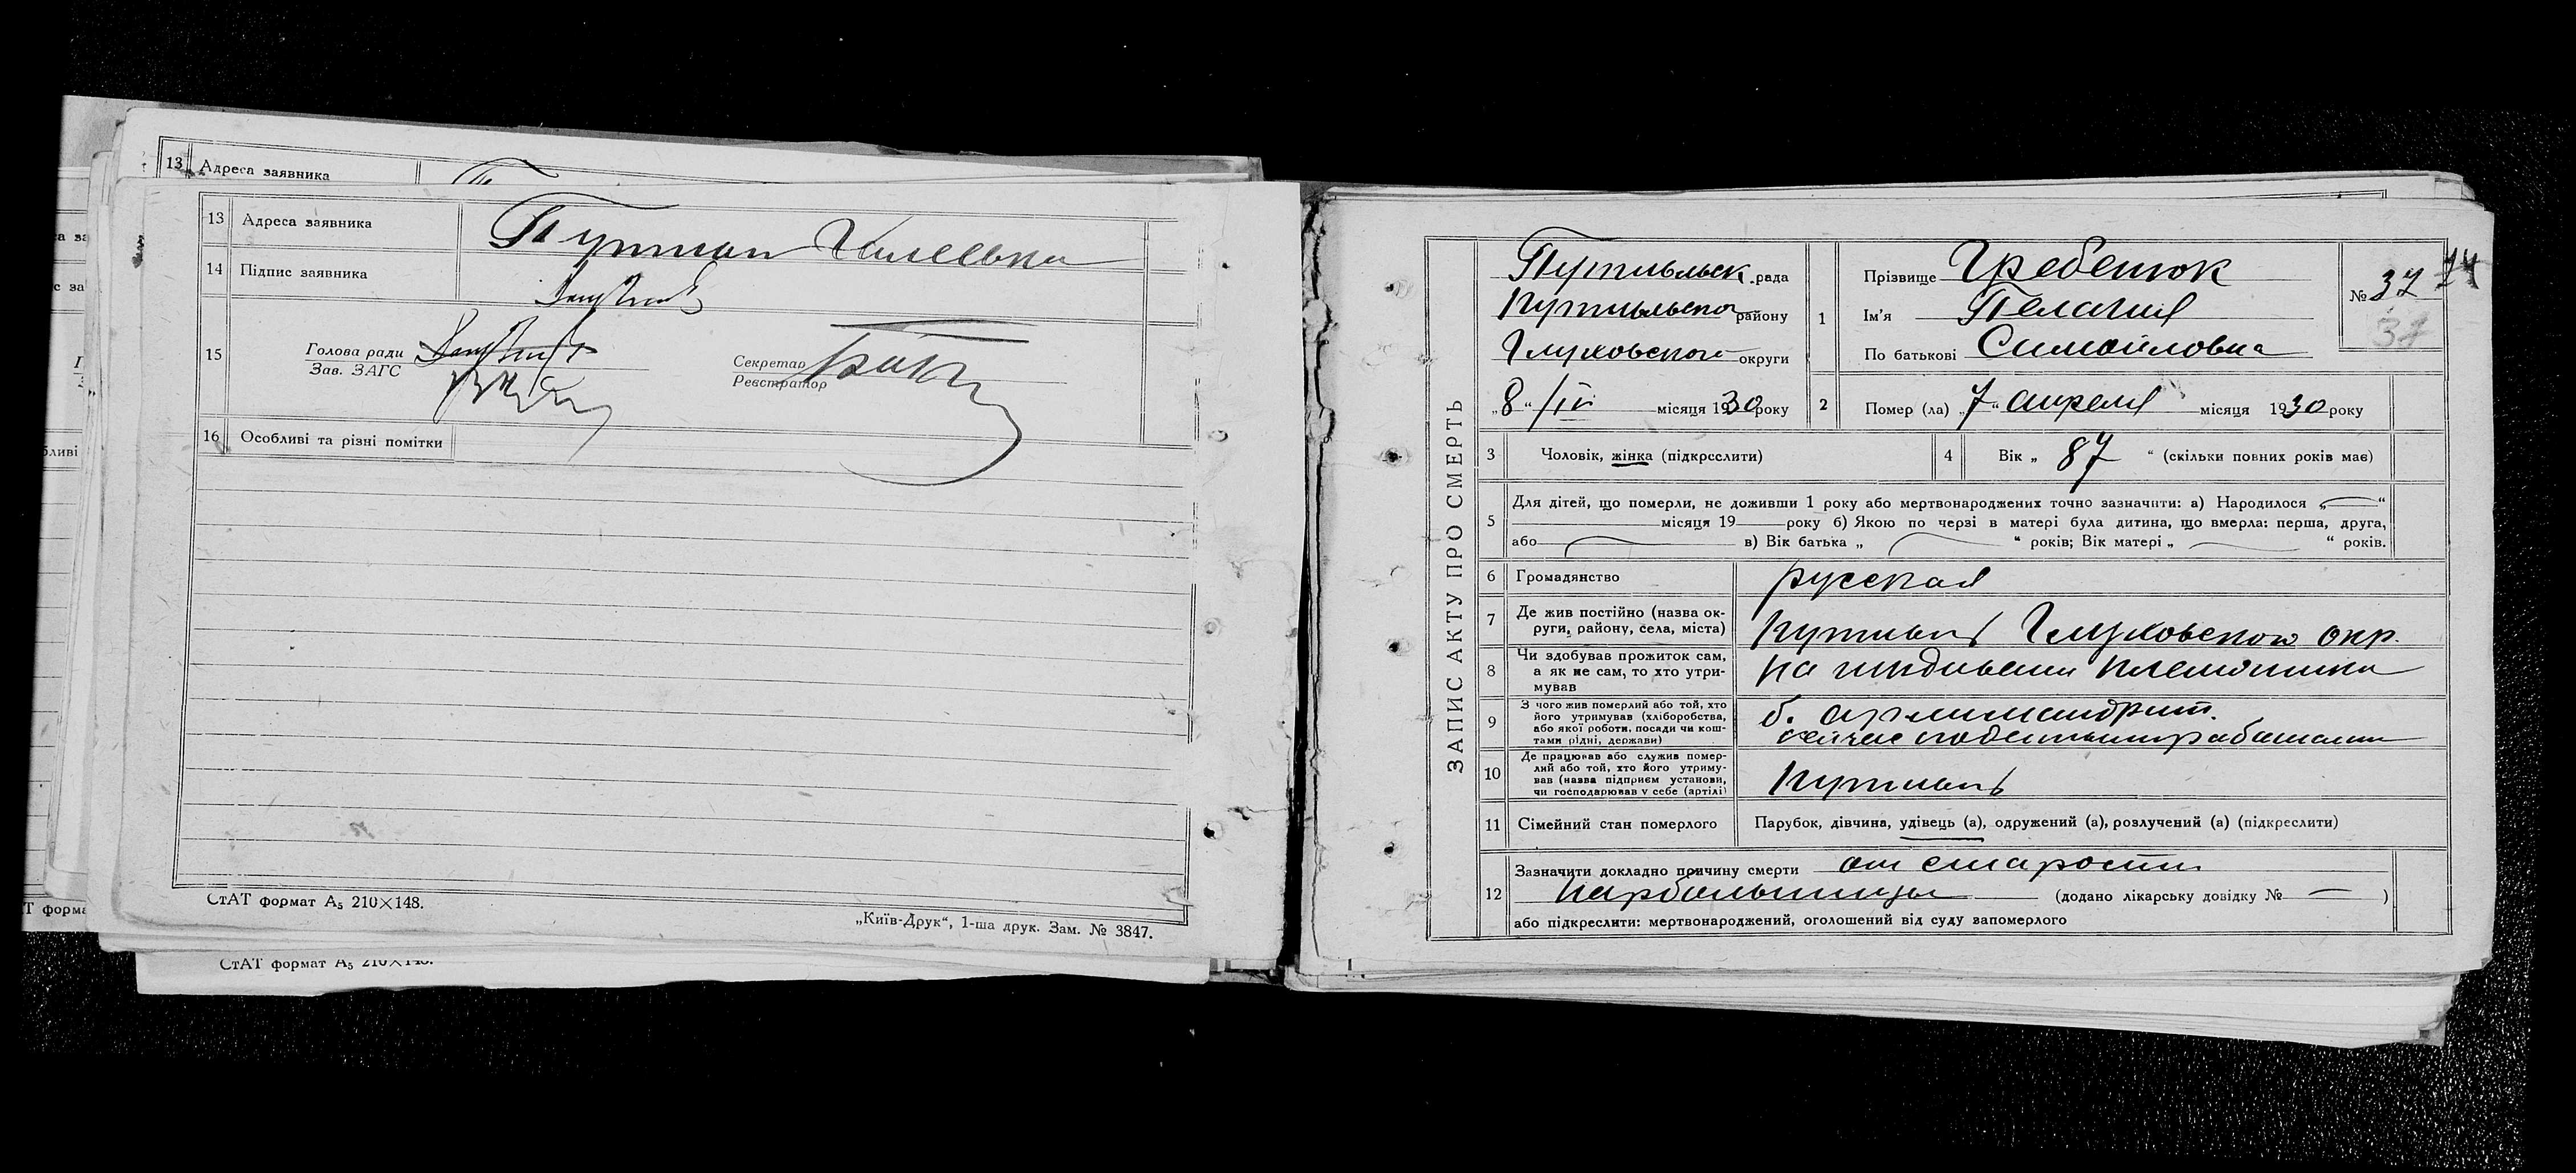 13 Адреса заявника
13 Адреса заявника
14 Підпис заявника
15 Голова ради
Зав. ЗАГС
Секретар
Реєстратор
16 Особливі та різні помітки
СтАТ формат А₅ 210×148.
„Київ-Друк“, 1-ша друк. Зам. № 3847.
СтАТ формат А₅
ЗАПИС АКТУ ПРО СМЕРТЬ
Путивльск. рада
Путивльского району
Глуховского округи
„8“ /IV місяця 1930 року
1 Прізвище Гребенюк
Ім'я Пелагия
По батькові Самойловна
№ 37 74
37
2 Помер (ла) „7“ апреля місяця 1930 року
3 Чоловік, жінка (підкреслити)
4 Вік „ 87 “ (скільки повних років має)
5 Для дітей, що померли, не доживши 1 року або мертвонароджених точно зазначити: а) Народилося „ “
місяця 19 року б) Якою по черзі в матері була дитина, що вмерла: перша, друга,
або в) Вік батька „ “ років; Вік матері „ “ років.
6 Громадянство русская
7 Де жив постійно (назва ок-
руги, району, села, міста) Путивль Глуховского окр.
8 Чи здобував прожиток сам,
а як не сам, то хто утри-
мував
на иждивении племянника
9 З чого жив померлий або той, хто
його утримував (хліборобства,
або якої роботи, посади чи кош-
тами рідні, держави)
б. архимандрит.
сейчас
10 Де працював або служив помер-
лий або той, хто його утриму-
вав (назва підприєм установи,
чи господарював у себе (артілі)
Путивль
11 Сімейний стан померлого Парубок, дівчина, удівець (а), одружений (а), розлучений (а) (підкреслити)
12 Зазначити докладно причину смерти от старости
(додано лікарську довідку № — )
або підкреслити: мертвонароджений, оголошений від суду запомерлого